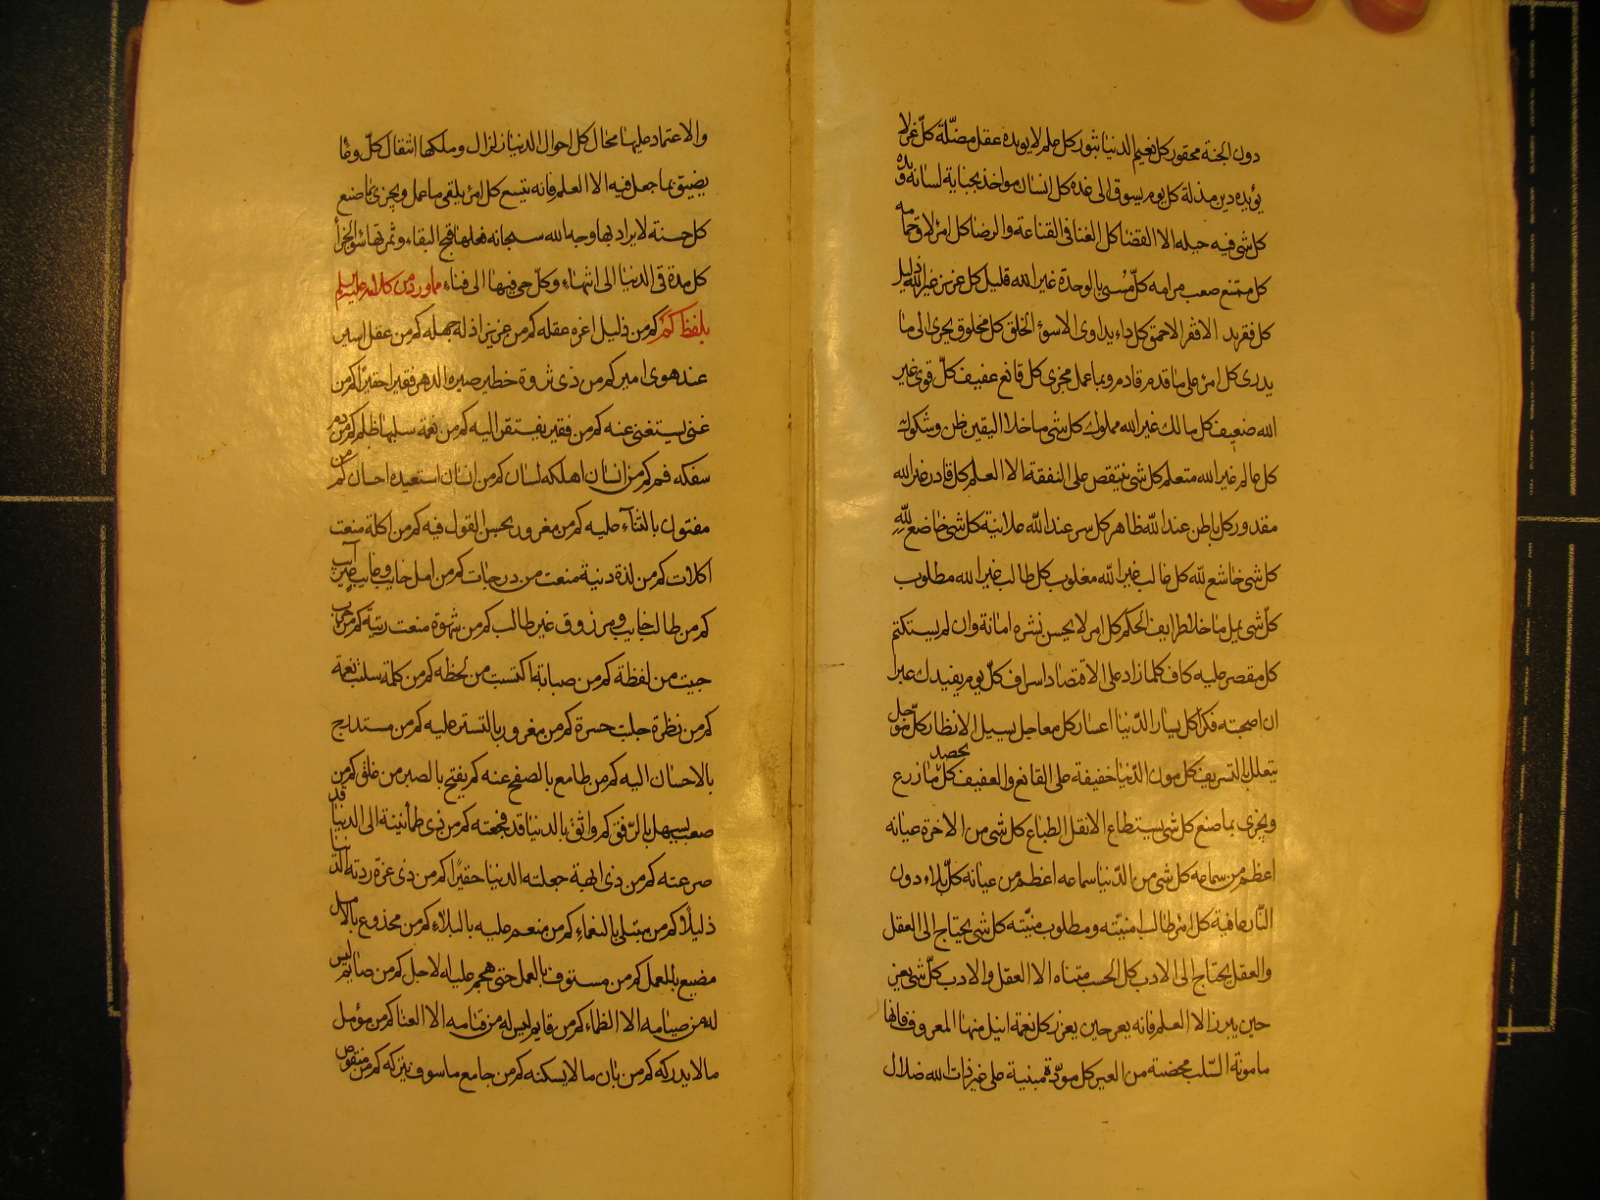 دون الجنة محقور كل نعيم الدنيا ثبور كل علم لا يويده عقل مضلّة كلّ عزّ لا
يؤيده دين مذلة كل يوم يسوق الى غده كل انسان مواخذ بجناية لسانه ويده
كل شى فيه حيله الا القضا كل الغنا فى القناعة والرضا كل امرئ لاق حمامه
كل ممتنع صعب مرامه كلّ مُسمى بالوحدة غير الله قليل كل عزيز غير الله ذليل
كل فقر يسد الا فقر الاحمق كل داء يداوى الا سوء الخلق كل مخلوق يجرى الى ما لا
يدرى كل امرئ على ما قدم قادم وبما عمل مجزى كل قانع عفيف كلّ قوى غير
الله ضعيف كل مالك غير الله مملوك كل شى ما خلا اليقين ظن وشكوك
كل عالم غير الله متعلم كل شى ينقص على النفقة الا العلم كل قادر غير الله
مقدور كل باطن عند الله ظاهر كل سر عند الله علانية كل شى خاضع لله
كل شى خاشع لله كل غالب غير الله مغلوب كل طالب غير الله مطلوب
كلّ شى يمل ما خلا طرايف الحكم كل امر لا يحسن نشره امانة وان لم يستكتم
كل مقصر عليه كاف كلما زاد على الاقتصاد اسراف كلّ يوم يفيدك عبرا
ان اصحبته فكرا كل يسار الدّنيا اعسار كل معاجل يسيل الانظار كلّ موجل
يتعلل بالتسويف كل مون الدّنيا خفيفة على القانع والعفيف كل يحصد ما زرع
ويجزى بما صنع كل شى يستطاع الا نقل الطباع كل شى من الاخرة عيانه
اعظم من سماعه كل شى من الدّنيا سماعه اعظم من عيانه كلّ بلاء دون
النّار عافية كل امرئ طالب امنيّته ومطلوب منيّته كل شى يحتاج الى العقل
والعقل يحتاج الى الادب كل الحسب متناه الا العقل والادب كلّ شى يعز
حين ينزر الا العلم فانه يعز حين يعزر كل نعمة انيل منها المعروف فانها
مامونة السّلب محصنة من الغير كل مودّة مبنية على غير ذات الله ضلال
والاعتماد عليها محال كل احوال الدنيا زلزال وملكها انتقال كلّ وعاء
يضيق بما جعل فيه الا العلم فانه يتسع كل امرئ يلقى ما عمل ويجزى بما صنع
كل حسنة لا يراد بها وجه الله سبحانه فعليها قبح البقاء وثمرتها سوء الجزاء
كل مدة فى الدنيا الى انتهاء وكلّ حى فيها الى فناء مما ورد من كلامه عليه السلم
بلفظ كم كم من ذليل اعزه عقله كم من عزيز اذله جهله كم من عقل اسير
عند هوى امير كم من ذى ثروة خطير صيره الدهر فقيرا حقيرًا كم من
غنى يستغنى عنه كم من فقير يفتقر اليه كم من نعمة سلبها ظلم كم من دم
سفكه فم كم من انسان اهلكه لسان كم من انسان استعبده احسان كم من
مفتون بالثناء عليه كم من مغرور بحسن القول فيه كم من اكلة منعت
اكلات كم من لذة دنية منعت من درجات كم من امل خايب وغايب غير آيب
كم من طالب خايب ومرزوق غير طالب كم من شهوة منعت رتبة كم من حرب
جنيت من لفظة كم من صبابة اكتسبت من لحظه كم من كلمة سلبت نعمة
كم من نظرة جلبت حسرة كم من مغرور بالتستر عليه كم من مستدرج
بالاحسان اليه كم من طامع بالصفح عنه كم يفتح بالصبر من غلق كم من
صعب يسهل بالرّفق كم واثق بالدنيا قد فجعته كم من ذى طمأنينة الى الدنيا قد
صرعته كم من ذى ابهة جعلته الدنيا حقيرًا كم من ذى عزة ردته الدنيا
ذليلًا كم من مبتلى بالنعماء كم من منعم عليه بالبلاء كم من مخدوع بالامل
مضيع بالعمل كم من مسوف بالعمل حتى هجم عليه الاجل كم من صائم ليس
له من صيامه الا الظماء كم من قايم ليس له من قيامه الا العنا كم من مؤمل
ما لا يدركه كم من بان ما لا يسكنه كم من جامع ما سوف يتركه كم من منقوص